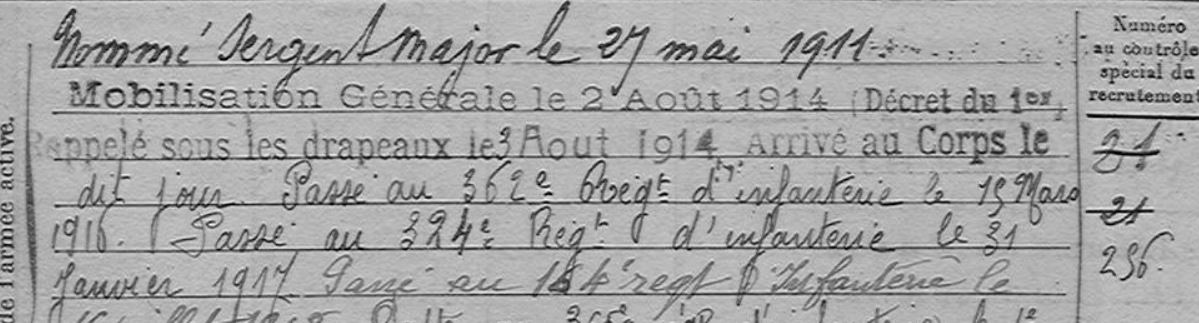 Nommé Sergent Major le 27 mai 1911.
Mobilisation Générale le 2 Août 1914 (Décret du 1er)
Rappelé sous les drapeaux le 3 Aout 1914 Arrivé au Corps le
dit jour. Passé au 362e Régt d'infanterie le 15 Mars
1916. Passé au 324e Régt d'infanterie le 31
Janvier 1917 Passé au regt d'Infanterie le
de l'armée active.
Numéro
au contrôle
spécial du
recrutement
21
236.